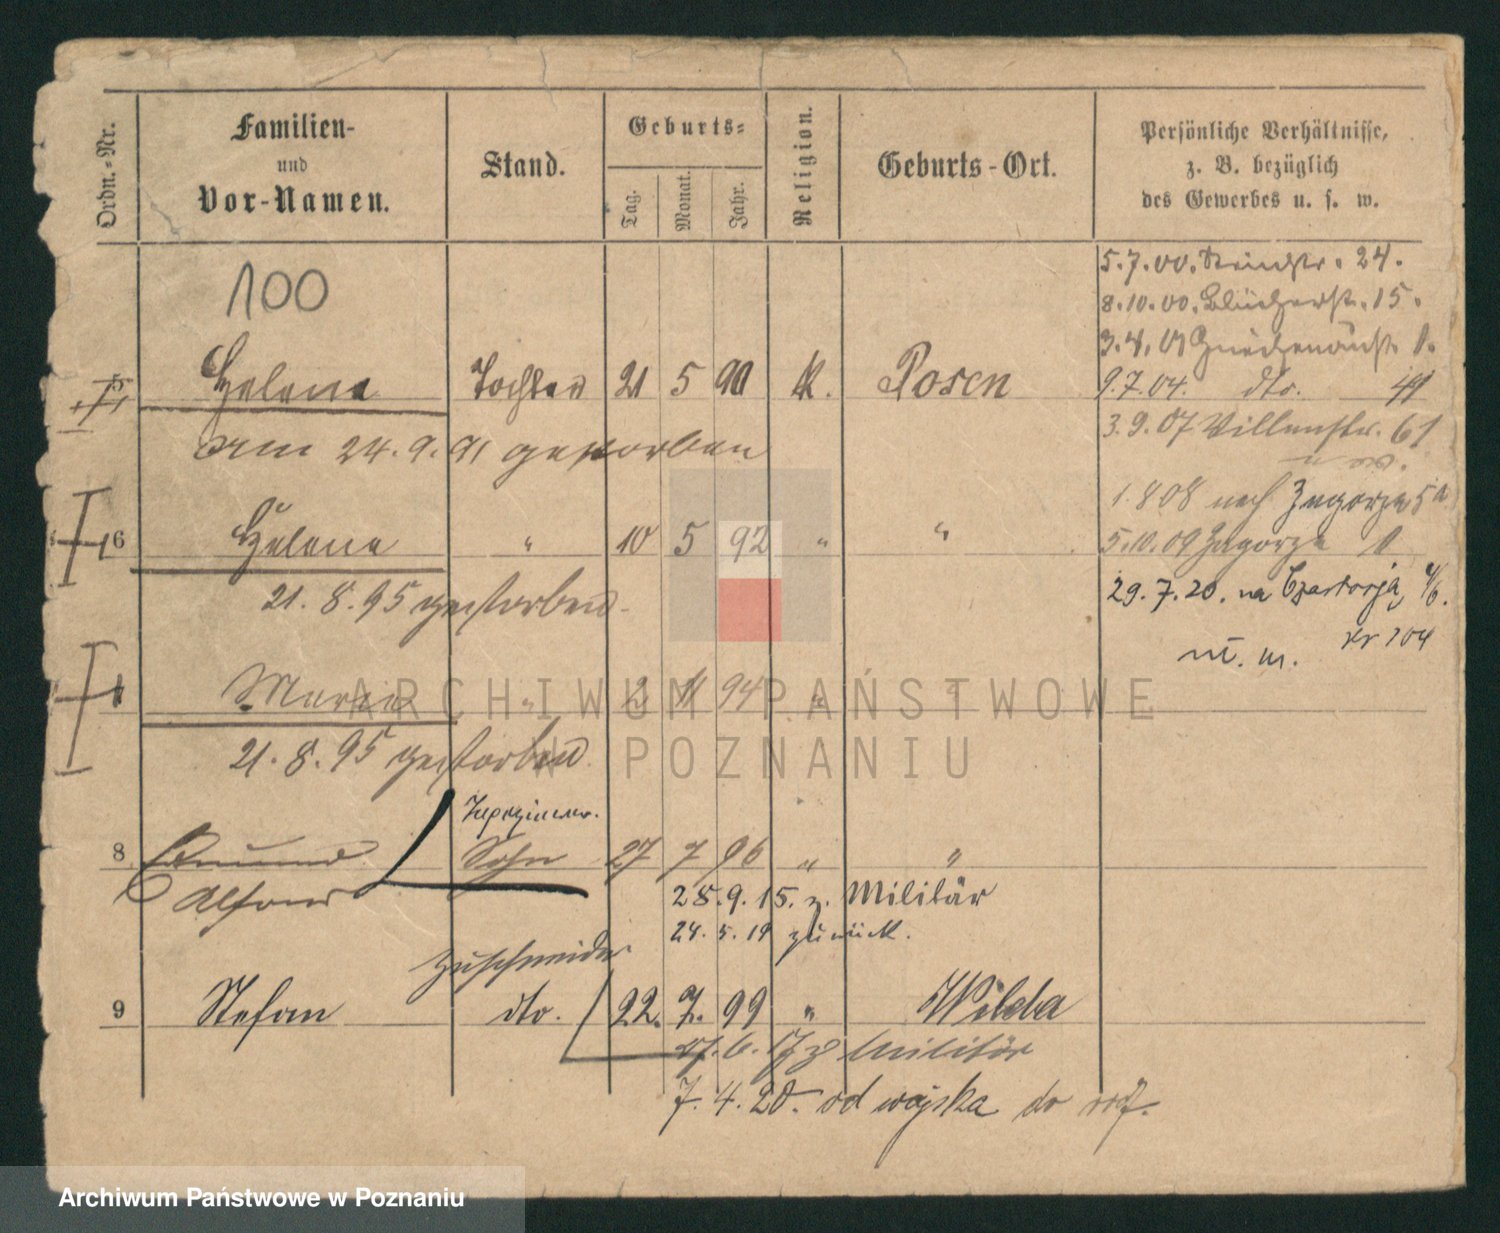 Ordn.-Nr.
Familien-
und
Vor-Namen.
Stand.
Geburts-
Tag.
Monat.
Jahr.
Religion.
Geburts-Ort.
Persönliche Verhältnisse,
z. B. bezüglich
des Gewerbes u. s. w.
100
5.7.00. Steinstr. 24.
8.10.00. Blücherstr. 15.
5 Helene Tochter 21 5 90 K. Posen
9.7.04. dto. 41
am 24.9.91 gestorben
3.9.07 Villenstr. 61
1.8 08 nach Zagorze 5a
6 Helene " 10 5 92 " "
5.10.09 Zagorze 1
21.8.95 gestorben.
29.7.20. na Czartorja 4/6.
Maria " 2 11 94 " "
21.8.95 gestorben.
ARCHIWUM PAŃSTWOWE
W POZNANIU
Tapezierer.
8 Edmund Sohn 27 7 96 " "
Alfons
28.9.15. z. Militär
24.5.19 zurück.
Zuschneider
9 Stefan dto. 22. 7. 99 " Wilda
17 z Militär
7.4.20. od wojska do
Archiwum Państwowe w Poznaniu